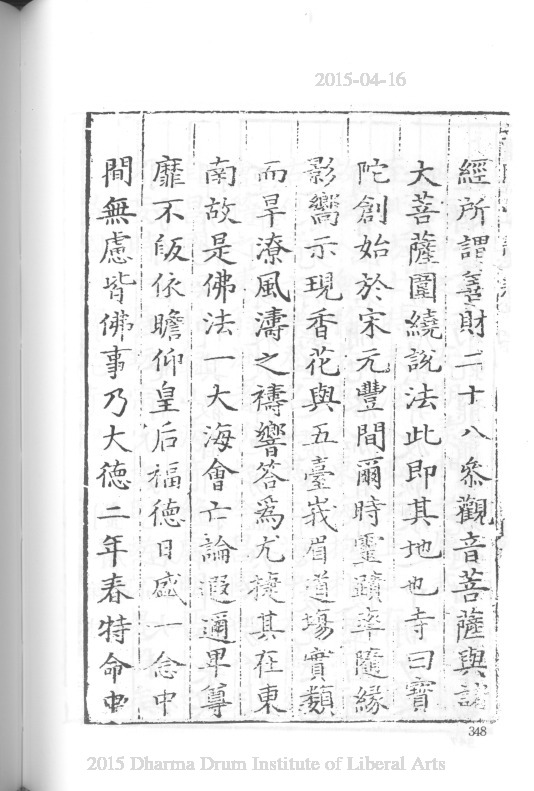 2015-04-16
經所謂善財二十八參觀音菩薩與諸
大菩薩圍繞說法此即其地也寺曰寶
陀創始於宋元豐間爾時靈蹟率隨緣
影嚮示現香花與五臺峩眉道場實類
而旱潦風濤之禱響答為尤捷其在東
南故是佛法一大海會亡論遐邇畢尊
靡不皈依瞻仰皇后福德日盛一念中
間無慮皆佛事乃大德二年春特命中
348
2015 Dharma Drum Institute of Liberal Arts